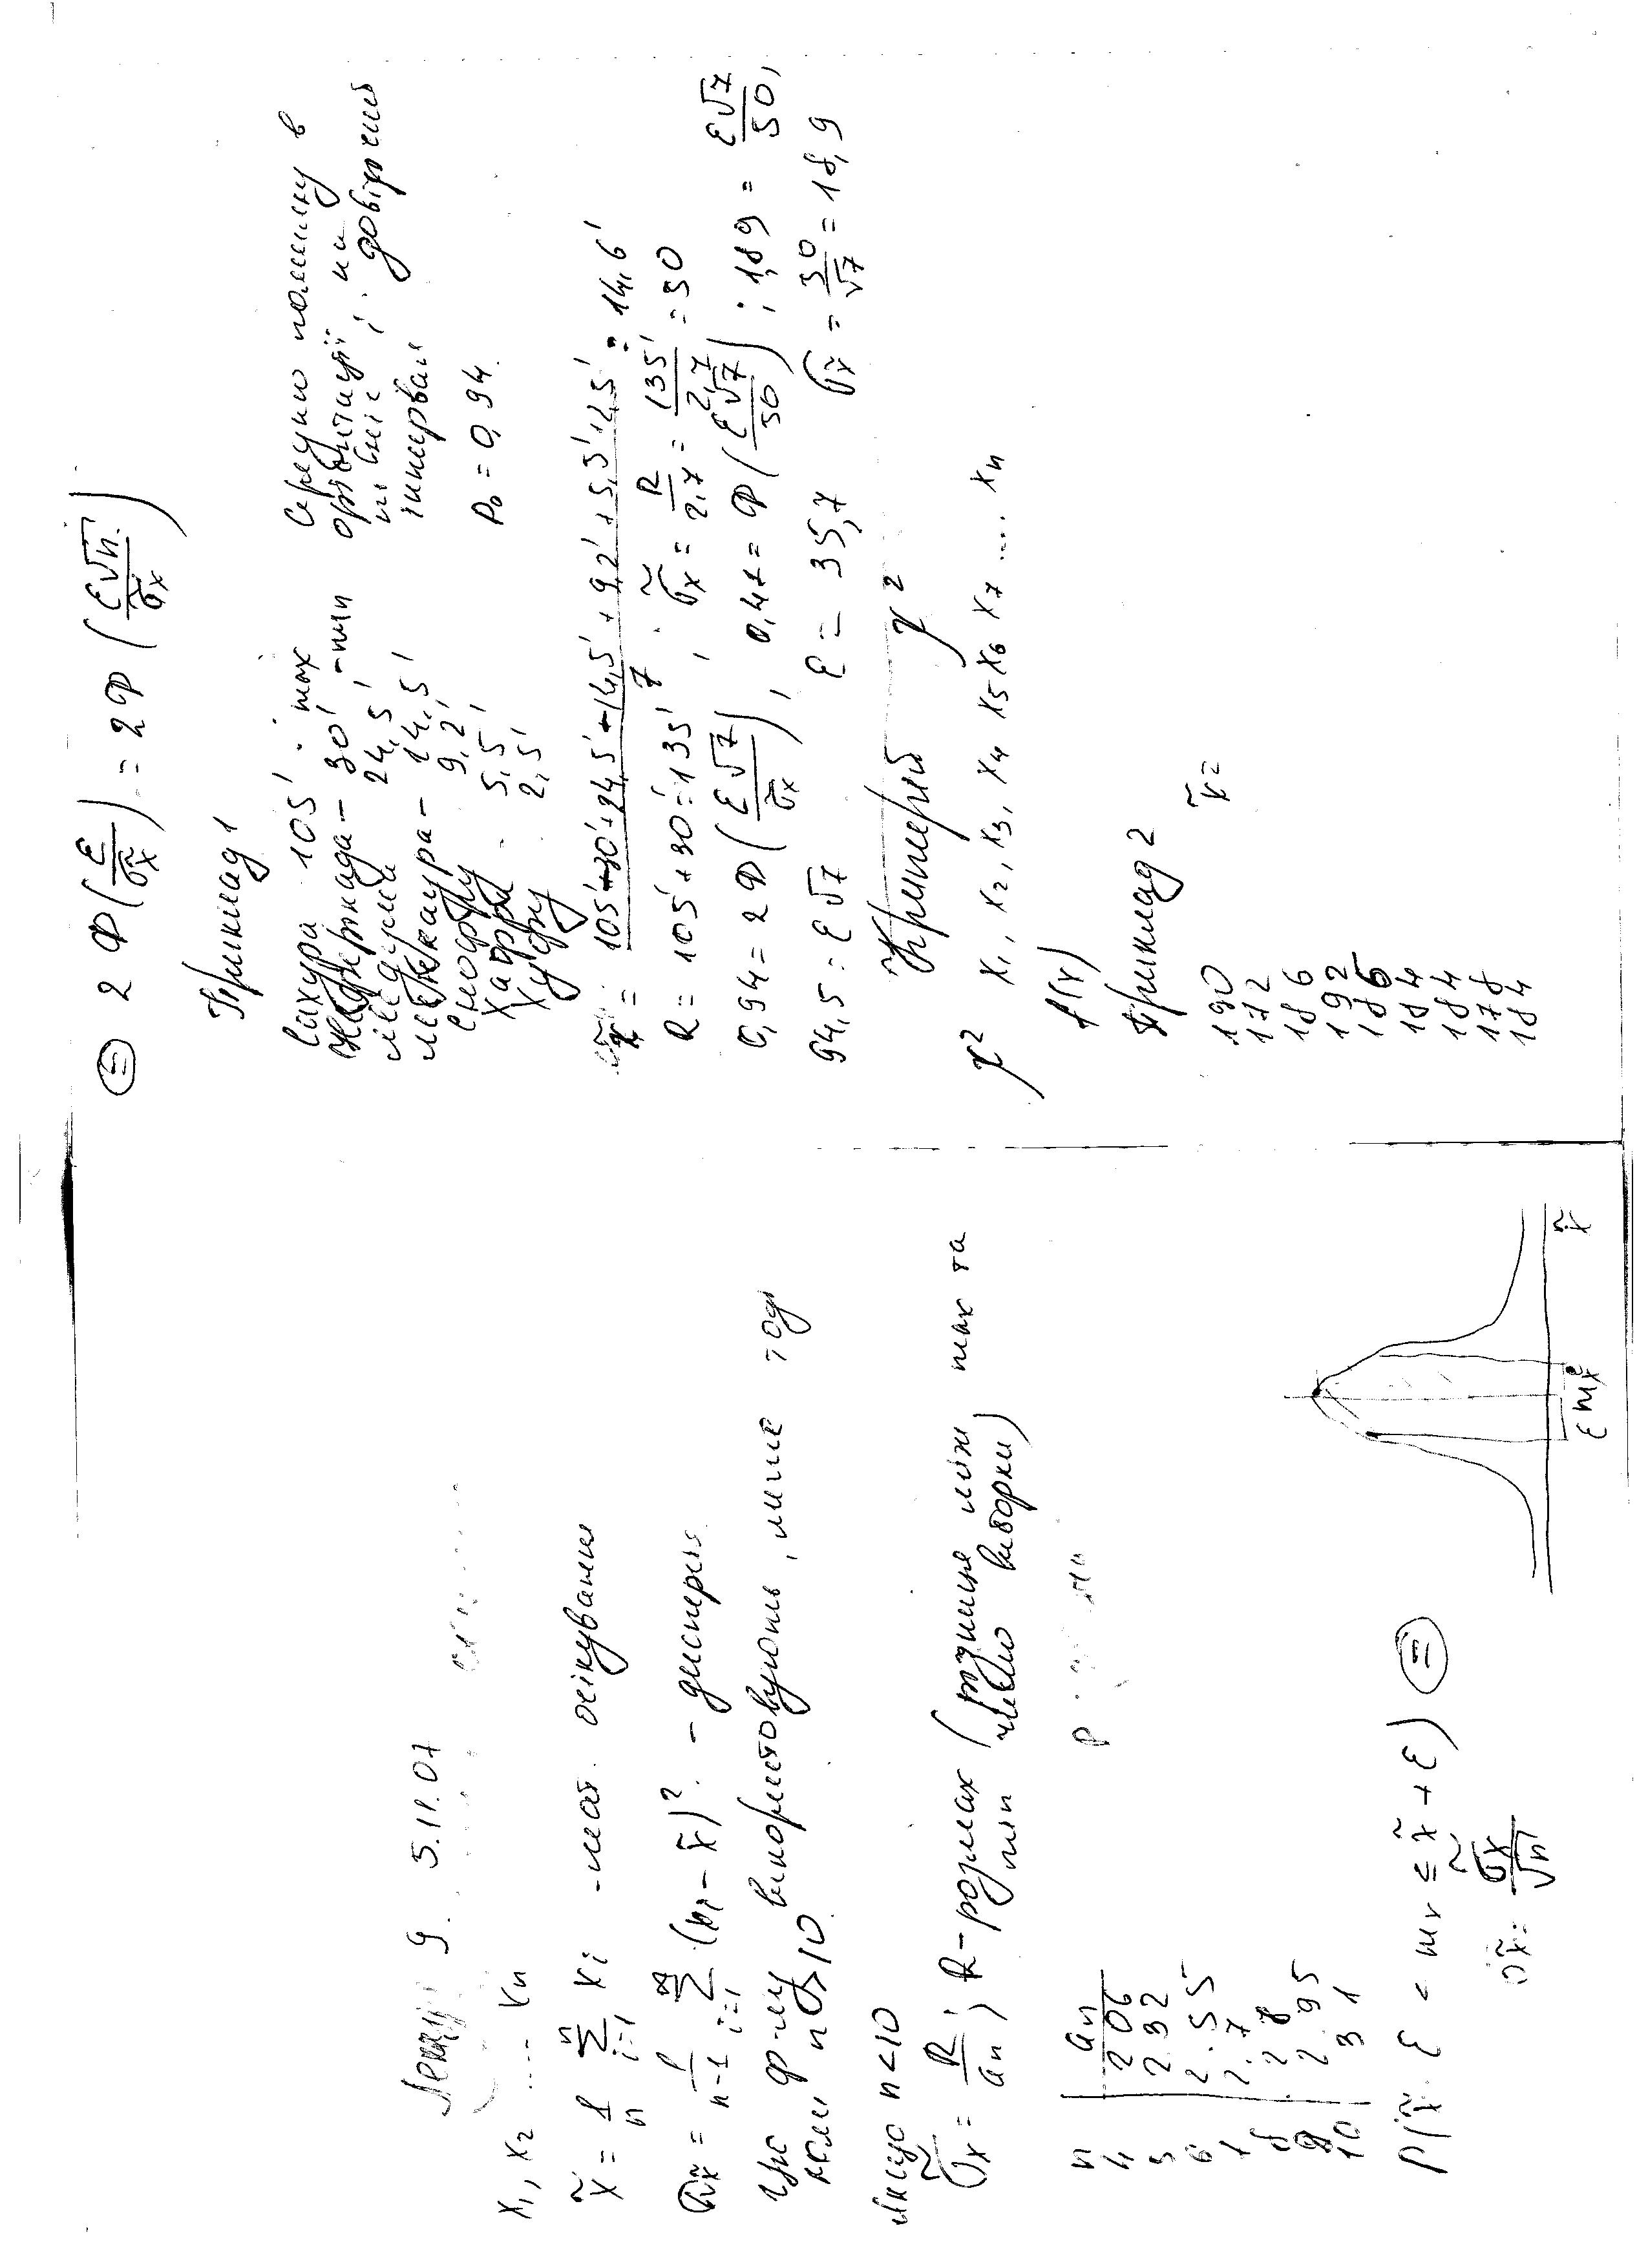 Лекція 9. 5.11.07
x₁, x₂ .... xₙ
x̃ = 1/n ∑ᵢ₌₁ⁿ xᵢ - мат. очікування
1/(n-1) ∑ᵢ₌₁ⁿ (xᵢ - x̃)². - дисперсія
Цю ф-лу використовують, лише тоді
коли n > 10
Якщо n < 10
σ̃ₓ = R/aₙ ; R - розмах (різниця між max та
min числю виборки)
n | aₙ
4 | 2 06
5 | 2.32
6 | 2.55
7 | 2.7
8 | 2 8
9 | 2.95
10 | 3 1
P(x̃ - ε < mₓ ≤ x̃ + ε) ⊜
σx̃ = σ̃ₓ/√n
ε mₓ x̃
⊜ 2Ф(ε/σx̃) = 2Ф(ε√n/σ̃ₓ)
Приклад 1
105' - max
30' - min
24,5'
14,5'
Снофру 9,2'
Хафра 5,5'
Хуфу 2,5'
Середню помилку в
орієнтації
і довірчий
інтервал
P₀ = 0,94.
x̃ = (105'-30'+24,5'-14,5'+9,2'+5,5'+2,5')/7 = 14,6'
R = 105'+30' = 135', σ̃ₓ = R/2,7 = 135'/2,7 = 50
0,94 = 2Ф(ε√7/σ̃ₓ), 0,47 = Ф(ε√7/50); 1,89 = ε√7/50,
94,5 = ε√7 ε = 35,7 σx̃ = 50/√7 = 18,9
Критерій χ²
χ² x₁, x₂, x₃, x₄ x₅ x₆ x₇ .... xₙ
f(x)
Приклад 2
190 x̃ =
172
186
192
186
184
184
178
184